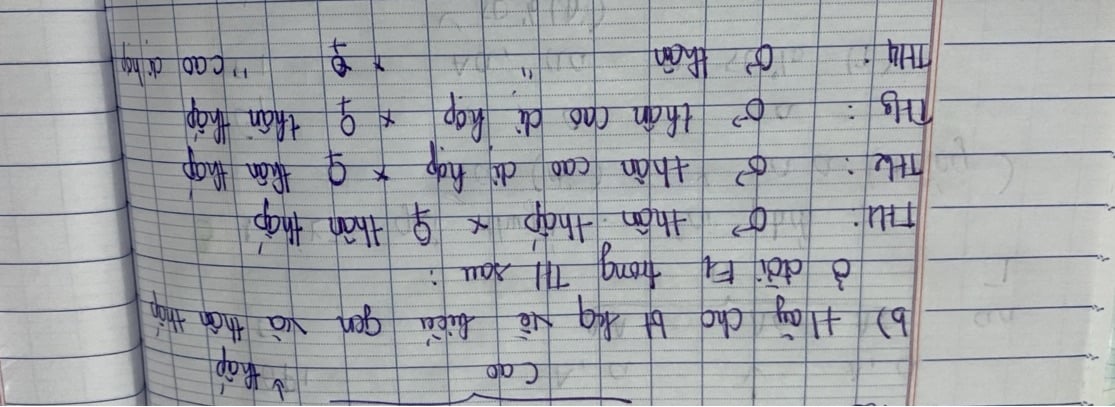 Cao ↓ thấp
b) Hãy cho bt kq về kiểu gen và thân thấp
ở đời F1 trong TH sau :
TH1: ♂ thân thấp x ♀ thân thấp
TH2: ♂ thân cao dị hợp x ♀ thân thấp
TH3: ♂ thân cao dị hợp x ♀ thân thấp
TH4: ♂ thân " x ♀ " cao dị hợp